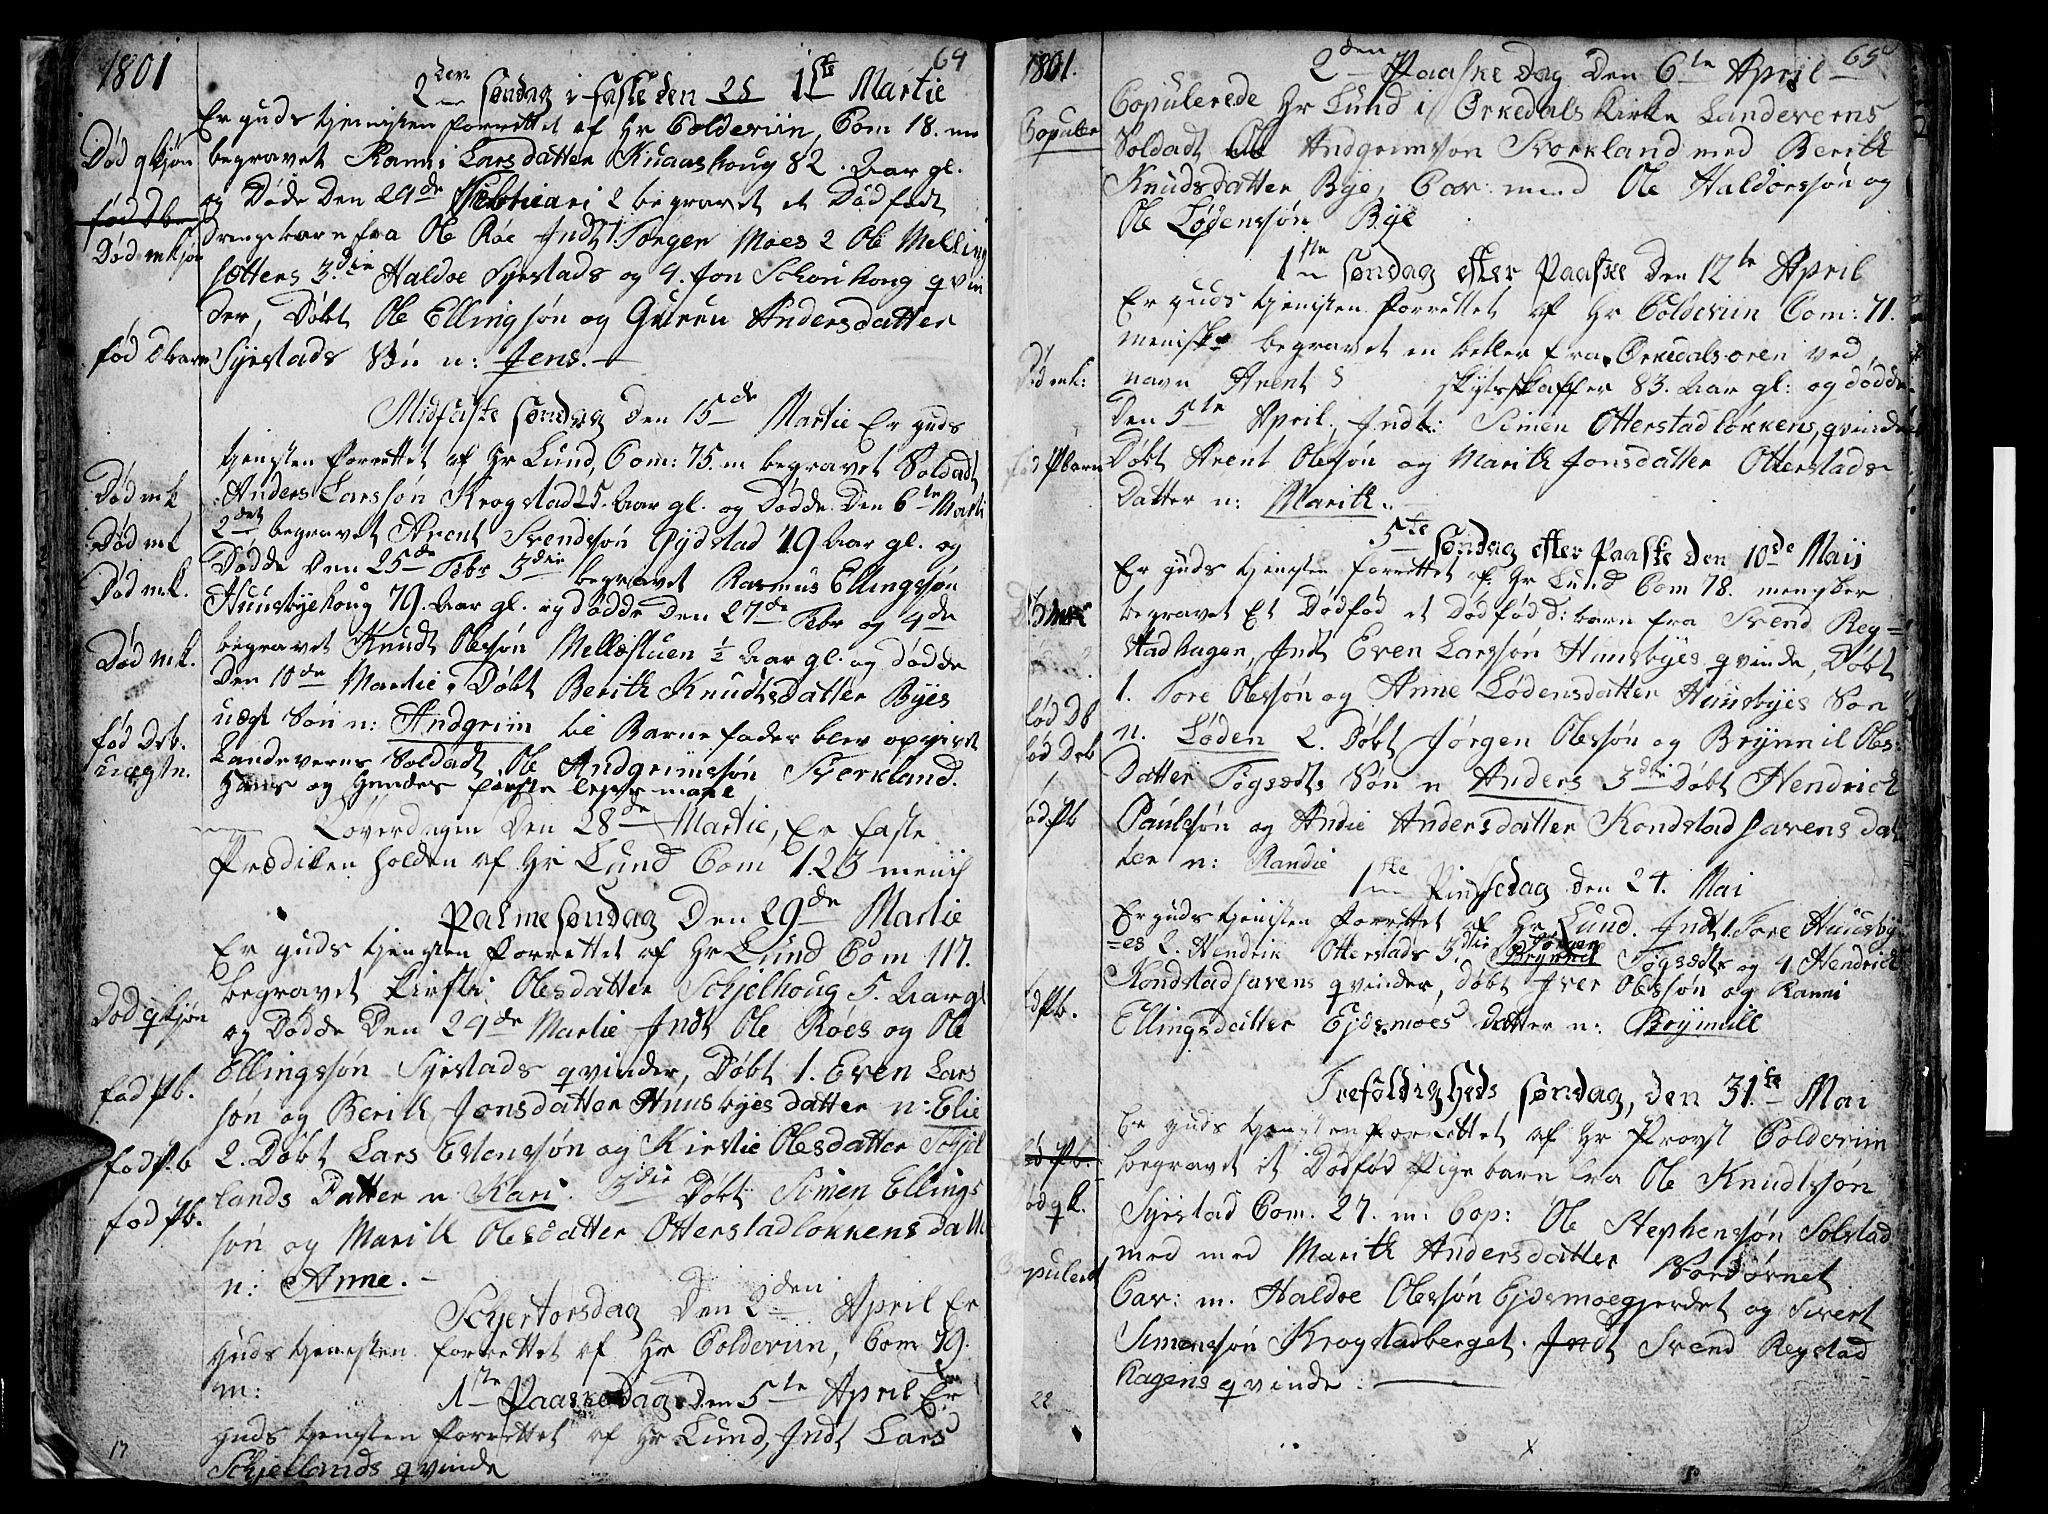 1801
64
2den søndag i faste den 25 1ste Martie
Er guds tienisten forrettet af Hr Colderiin, Com 18. me
Død qkjøn
begravet Ranni Larsdatter Kuaashoug 82. Aar gl.
og døde den 24de Februari 2 begravet et Dødfødt
fød Db
Død mkjøn
drengebarn fra Ole Röe Indt 1 Jørgen Moes 2 Ole Melling
sætters 3die Haldoe Syrstads og 4. Jon Schouhoug qvin
der, Døbt Ole Ellingsøn og Guruu Andersdatter
fød Dbarn
Syrstads Søn n: Jens.
Midfaste søndag den 15de Martie Er guds
tjensten forrettet af Hr Lund, Com: 75. m begravet Soldadt
Død mk
Anders Larssøn Krogstad 25 Aar gl. og dødde den 6te Marti
2det begravet Arent Svendssøn Gydstad 49 Aar gl. og
Død mk
Dødde den 25de Febr 3die begravet Rasmus Ellingssøn
Død mk.
Huusbyehoug 79. Aar gl. og dødde den 27de Febr og 4de
begravet Knudt Olessøn Mellæstuen ½ Aar gl. og dødde
Død mk.
den 10de Martie, Døbt Berith Knudtsdatter Byes
uægt Søn n: Andgrim til Barnefader blev opgivet
fød Drb.
uægtn.
Landeverns Soldadt Ole Andgrimssøn Storkland.
Hans og Hendes første leyermaal
Løverdagen den 28de Martie, Er faste
Prædiken holden af Hr Lund Com 123 menisk
Palmesøndag den 29de Martie
Er guds tjensten forrettet af Hr Lund Com 117.
begravet Kirsti Olesdatter Schjelhoug 5. Aar gl
Død qkjøn
og Dødde den 24de Martie Indt Ole Röes og Ole
Ellingssøn Syrstads qvinder, Døbt 1. Even Lars
fød Pb.
søn og Berith Jonsdatter Huusbyes datter n: Elie
2. Døbt Lars Estenssøn og Kirstie Olesdatter Schjel
fød P.b
lands Datter n Kari. 3die Døbt Simen Ellings
fød Pb.
søn og Marith Olesdatter Otterstadløkkens datt
n: Anne.
Schjertorsdag den 2den April Er
guds tjenesten forrettet af Hr Colderiin, Com 79.
m:
1ste Paaskedag den 5te April Er
guds tjensten forrettet af Hr Lund, Indt Lars
17
Schjellands qvinde
1801.
65
2den Paaskedag den 6te April
Copuler
Copulerede Hr Lund i Ørkedals Kirke Landeverns
Soldadt Ole Andgrimsøn Storkland med Berith
Knudsdatter Bye, Cav: mend Ole Haldorssøn og
Ole Lødenssøn Bye
1ste søndag efter Paaske den 12te April
Er guds tjenisten forrettet af Hr Colderiin Com: 71.
menisk begravet en betler fra Orkedalsoren ved
Død mk:
navn Arent S skytsskaffer 83. Aar gl: og dødde
den 5te April, Indt: Simen Otterstadløkkens qvinde
fød Pbarn
Døbt Arent Olesøn og Marith Jonsdatter Otterstads
Datter n: Marith.
5te søndag efter Paaske den 10de Maij
Er guds tjensten forrettet af Hr Lund Com 78. mensker
begravet Et Dødfød et Dødfød d: barn fra Svend Reg=
stadhagen, Indt Even Larssøn Huusbyes qvinde, Døbt
1. Tore Olessøn og Anne Lødensdatter Huusbyes Søn
fød Db
n. Løden 2. Døbt Jørgen Olessøn og Brynnil Oles=
fød Drb
Datter Togsedts Søn n Anders 3die Døbt Hendrich
fød Pb
Paulsøn og Andie Andersdatter Kondstadhavens dat
ter n: Randie
1ste Pinsedag den 24. Mai
Er guds tjenisten forrettet af Hr Lund. Indt 1. Tore Huusby
=es 2. Hendrik Otterstads 3.die Jørgen Togsedts og 4. Hendrich
Kondstadhavens qvinder, døbt Iver Olessøn og Ranni
fød Pb.
Ellingsdatter Ejdsmoes datter n: Brynnill
Trefoldigheds søndag, den 31te Mai
Er guds tjensten forrettet af Hr Provst Colderiin
fød Pb.
begravet et Dødfød Pigebarn fra Ole Knudtssøn
død qk.
Syrstad Com. 27. m: Cop: Ole Stephenssøn Solstad
med med Marith Andersdatter Hordørnet
Copulered
Cav: m. Haldoe Olessøn Ejdsmoegjerdet og Sivert
Simenssøn Krogstadberget. Indt Svend Regstad
hagens qvinde.
22